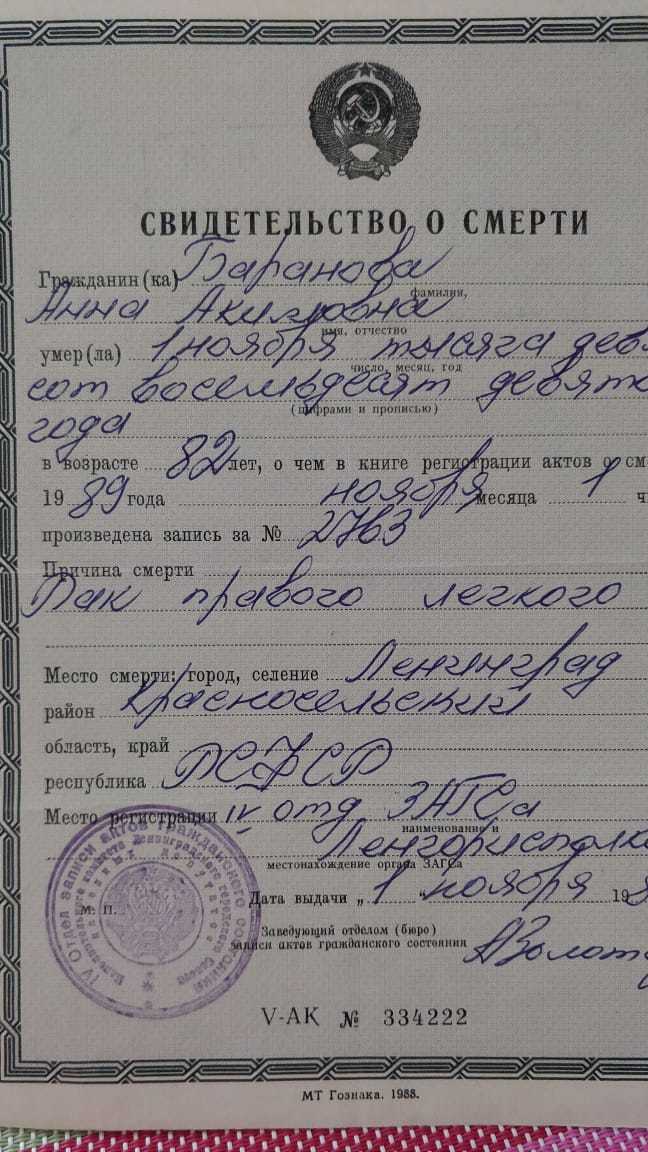 СВИДЕТЕЛЬСТВО О СМЕРТИ
Гражданин (ка) Баранова
фамилия,
Анна Акимовна
имя, отчество
умер(ла) 1 ноября тысяча дев
число, месяц, год
сот восемьдесят девято
(цифрами и прописью)
года
в возрасте 82 лет, о чем в книге регистрации актов о см
19 89 года ноября месяца 1 ч
произведена запись за № 2763
Причина смерти
Рак правого легкого
Место смерти: город, селение Ленинград
район Красносельский
область, край
республика РСФСР
Место регистрации IV отд ЗАГСа
наименование и
Ленгорисполко
местонахождение органа ЗАГСа
Дата выдачи „ 1 “ ноября 19
М. П.
Заведующий отделом (бюро)
записи актов гражданского состояния
IV ОТДЕЛ ЗАПИСИ АКТОВ ГРАЖДАНСКОГО СОСТОЯНИЯ
Исполнительного комитета Ленинградского городского Совета
народных депутатов
V-АК № 334222
МТ Гознака. 1988.